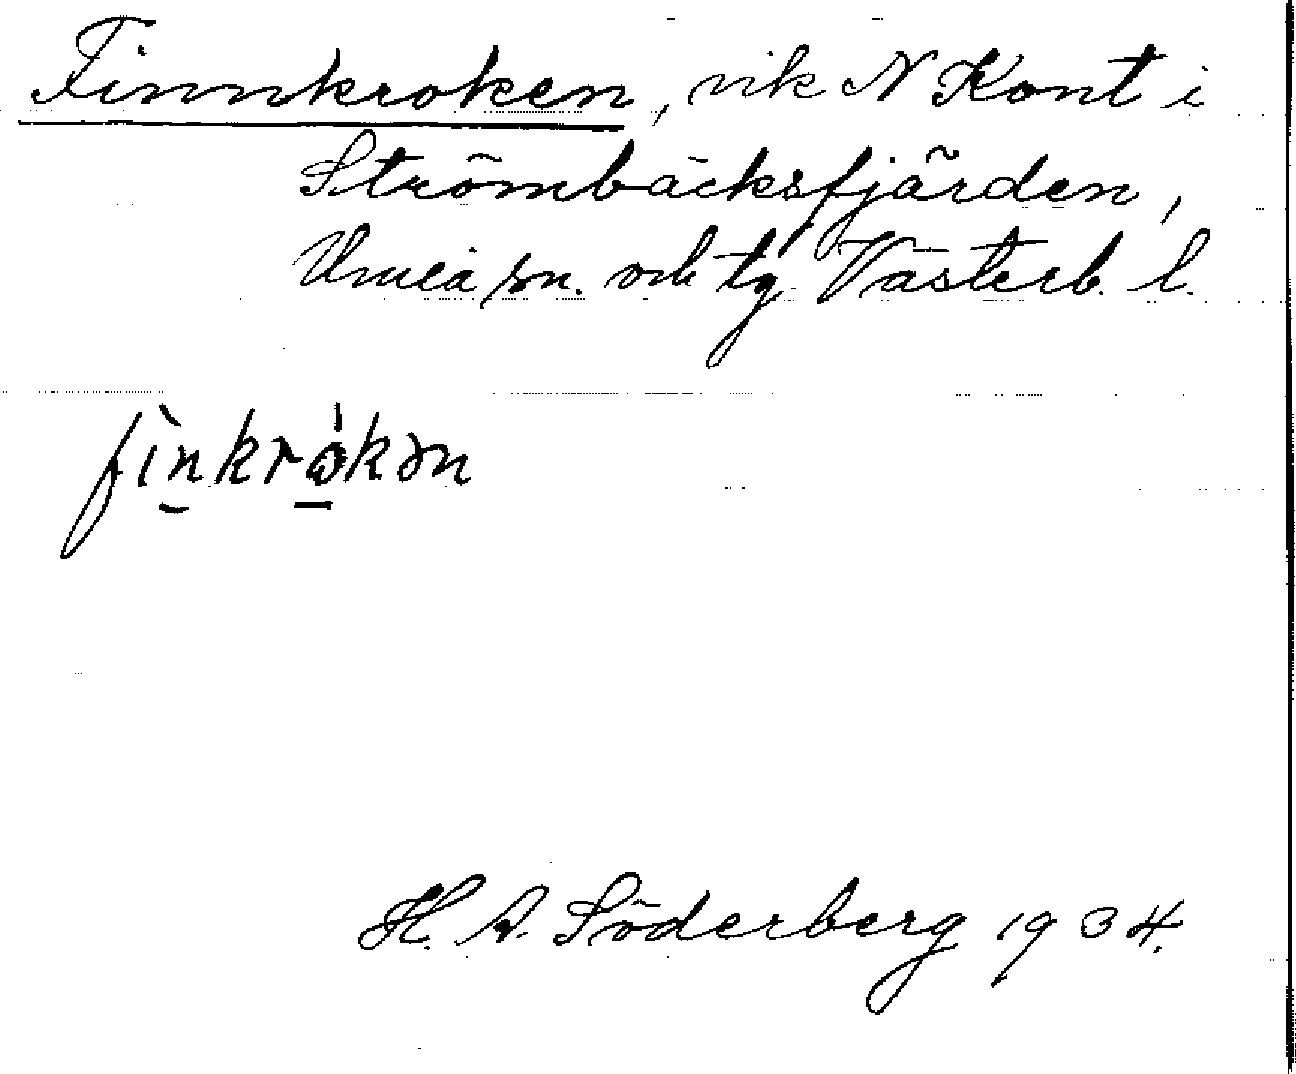 Finnkroken, vik N Kont i
Strömbäcksfjärden,
Umeå sn. och tg. Västerb. l.
fìn̠krώ̠kən
H. A. Söderberg 1934.